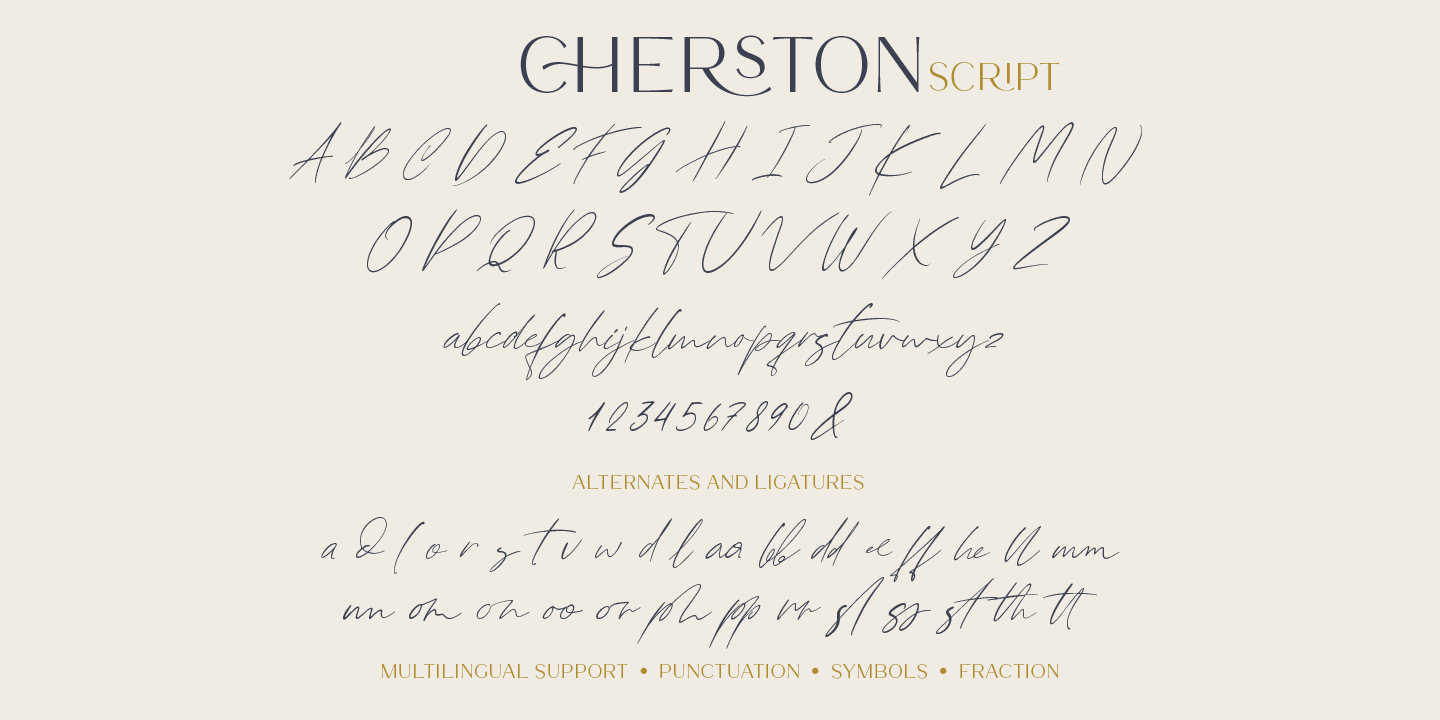 CHERSTON SCRIPT
A B C D E F G H I J K L M N
O P Q R S T U V W X Y Z
abcdefghijklmnopqrstuvwxyz
1234567890&
ALTERNATES AND LIGATURES
a Q ( o r s t v w d l aa bb dd ee ff he ll mm
nn om on oo or ph pp rr sl ss st th tt
MULTILINGUAL SUPPORT • PUNCTUATION • SYMBOLS • FRACTION